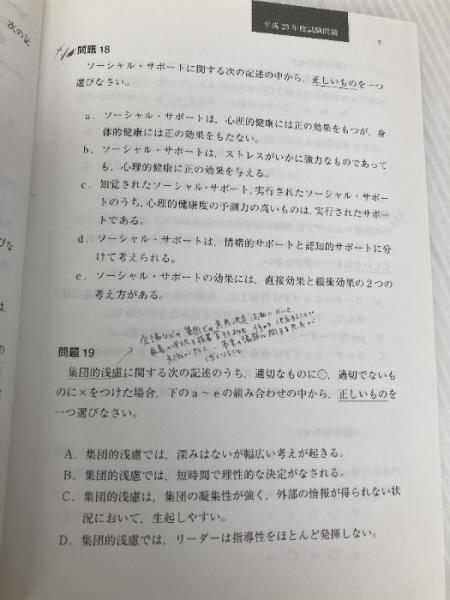 平成23年度試験問題
7
次の記
問題18
ソーシャル・サポートに関する次の記述の中から，正しいものを一つ
選びなさい。
a．ソーシャル・サポートは，心理的健康には正の効果をもつが，身
体的健康には正の効果をもたない。
b．ソーシャル・サポートは，ストレスがいかに強力なものであって
も，心理的健康に正の効果を与える。
c．知覚されたソーシャル・サポート，実行されたソーシャル・サポー
トのうち，心理的健康度の予測力の高いものは，実行されたサポー
トである。
びな
d．ソーシャル・サポートは，情緒的サポートと認知的サポートに分
けて考えられる。
e．ソーシャル・サポートの効果には，直接効果と緩衝効果の2つの
考え方がある。
は，
問題19
集団的浅慮に関する次の記述のうち，適切なものに○，適切でないも
のに×をつけた場合，下のa～eの組み合わせの中から，正しいものを
一つ選びなさい。
A．集団的浅慮では，深みはないが幅広い考えが起きる。
B．集団的浅慮では，短時間で理性的な決定がなされる。
C．集団的浅慮は，集団の凝集性が強く，外部の情報が得られない状
況において，生起しやすい。
D．集団的浅慮では，リーダーは指導性をほとんど発揮しない。